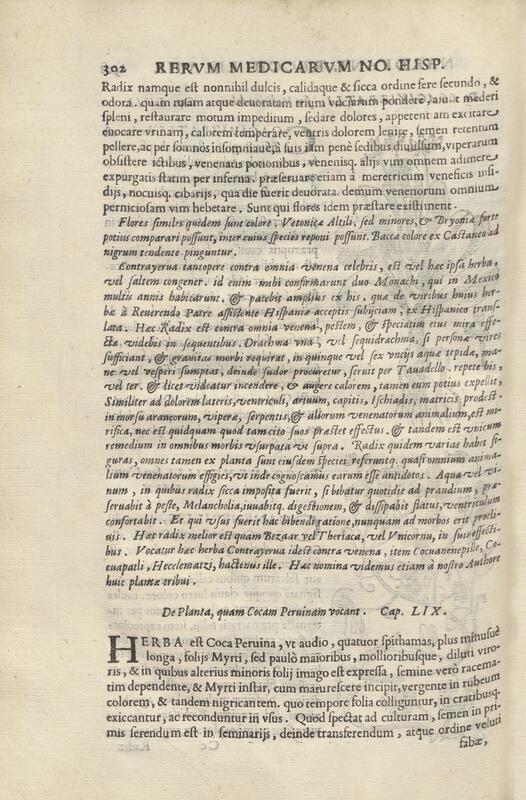 302 RERVM MEDICARVM NO. HISP.
Radix namque est nonnihil dulcis, calidaque & sicca ordine fere secundo, &
odora. quam tusam atque deuoratam trium vnciarum pondere, aiunt mederi
spleni, restaurare motum impeditum, sedare dolores, appetentiam excitare
euocare vrinam, calorem temperare, ventris dolorem lenire, semen retentum
pellere, ac per somnos insomniaue, à suis iam penè sedibus diuulsum, viperarum
obsistere ictibus, venenatis potionibus, venenisq. alijs vim omnem adimere
expurgatis statim per inferna. præseruare etiam à meretricum veneficis insi-
dijs, nocuisq. cibarijs, qua die fuerit deuorata. demum venenorum omnium
perniciosam vim hebetare. Sunt qui flores idem præstare existiment.
Flores similes quidem sunt colore, Vetonicæ Altili, sed minores, & Bryoniæ forte
potius comparari possunt, inter cuius species reponi possunt. Baccæ colore ex Castaneo ad
nigrum tendente pinguntur.
Contrayerua tantopere contra omnia venena celebris, est vel hæc ipsa herba,
vel saltem congener. id enim mihi confirmarunt duo Monachi, qui in Mexico
multis annis habitarunt. & patebit amplius ex his, quæ de viribus huius her-
bæ à Reuerendo Patre assistente Hispaniæ acceptis subijciam, ex Hispanico trans-
lata. Hæc Radix est contra omnia venena, pestem, & speciatim eius mira effe-
cta videbis in sequentibus. Drachma vna, vel sequidrachma, si personæ vires
sufficiant, & grauitas morbi requirat, in quinque vel sex vncijs aquæ tepidæ, ma-
ne vel vesperi sumptas, deinde sudor procuretur, seruit per Tauadello. repete bis,
vel ter. & licet videatur incendere, & augere calorem, tamen eum potius expellit,
Similiter ad dolorem lateris, ventriculi, artuum, capitis, Ischiadis, matricis prodest.
in morsu araneorum, viperæ, serpentis, & aliorum venenatorum animalium, est mi-
rifica, nec est quidquam quod tam cito suos præstet effectus. & tandem est vnicum
remedium in omnibus morbis vsurpata vt supra. Radix quidem varias habet fi-
guras, omnes tamen ex planta sunt eiusdem speciei referuntq. quasi omnium anima-
lium venenatorum effigies, vt inde cognoscamus earum esse antidotos. Aqua vel vi-
num, in quibus radix sicca imposita fuerit, si bibatur quotidie ad prandium, præ-
seruabit à peste, Melancholia, iuuabitq. digestionem, & dissipabit flatus, ventriculum
confortabit. Et qui vsus fuerit hac bibendi ratione, nunquam ad morbos erit procli-
uis. Hæc radix melior est quam Bezaar vel Theriaca, vel Vnicornu, in suis effecti-
bus. Vocatur hæc herba Contrayerua idest contra venena, item Cocuanenepille, Co-
cuapatli, Hecelematzi, hactenus ille. Hæc nomina videmus etiam à nostro Authore
huic plantæ tribui.
De Planta, quam Cocam Peruinam vocant. Cap. LIX.
HERBA est Coca Peruina, vt audio, quatuor spithamas, plus minusuè
longa, folijs Myrti, sed paulò maioribus, mollioribusque, diluti viro-
ris, & in quibus alterius minoris folij imago est expressa, semine verò racema-
tim dependente, & Myrti instar, cum maturescere incipit, vergente in rubeum
colorem, & tandem nigricantem. quo tempore folia colliguntur, in cratibusq.
exiccantur, ac reconduntur in vsus. Quod spectat ad culturam, semen in pri-
mis serendum est in seminarijs, deinde transferendum, atque ordine veluti
fabæ,